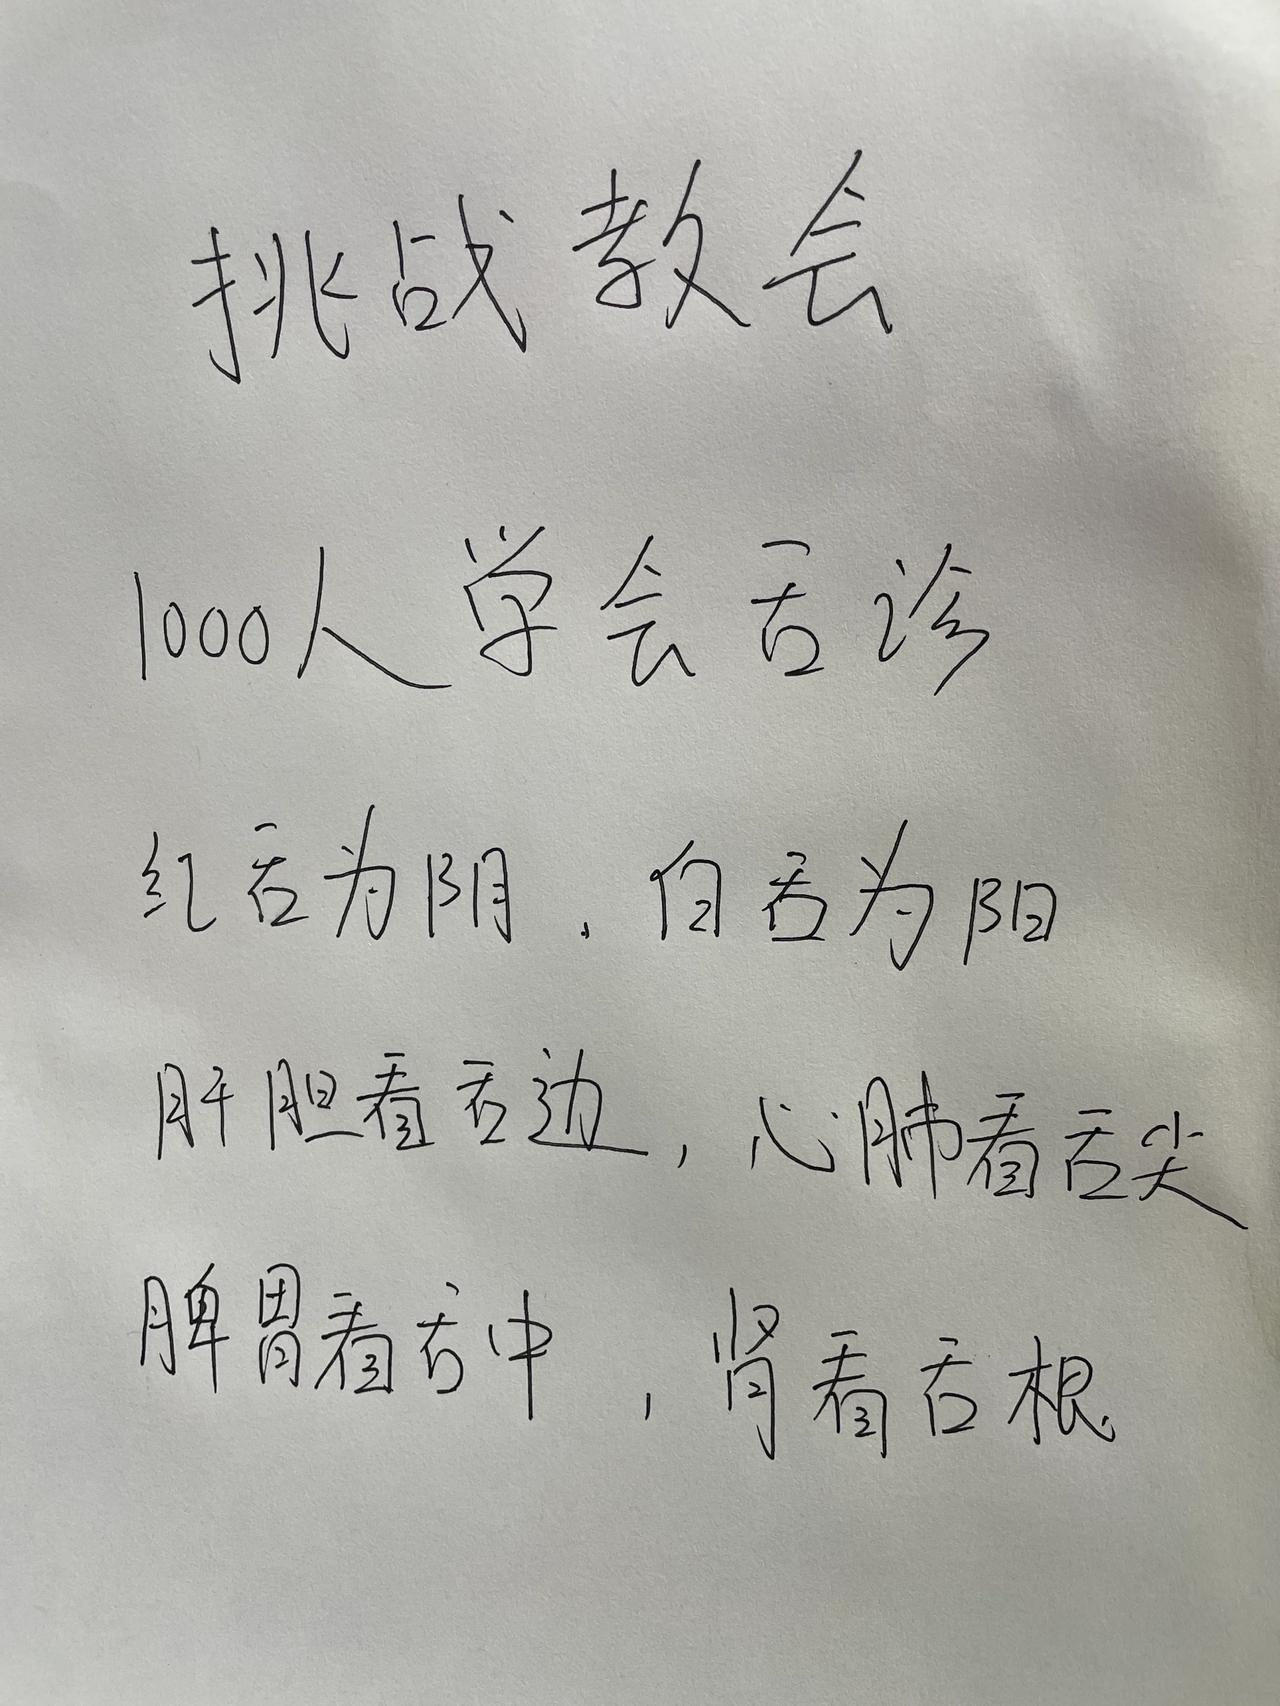 挑战教会
1000人学会舌诊
红舌为阴,白舌为阳
肝胆看舌边,心肺看舌尖
脾胃看舌中,肾看舌根.